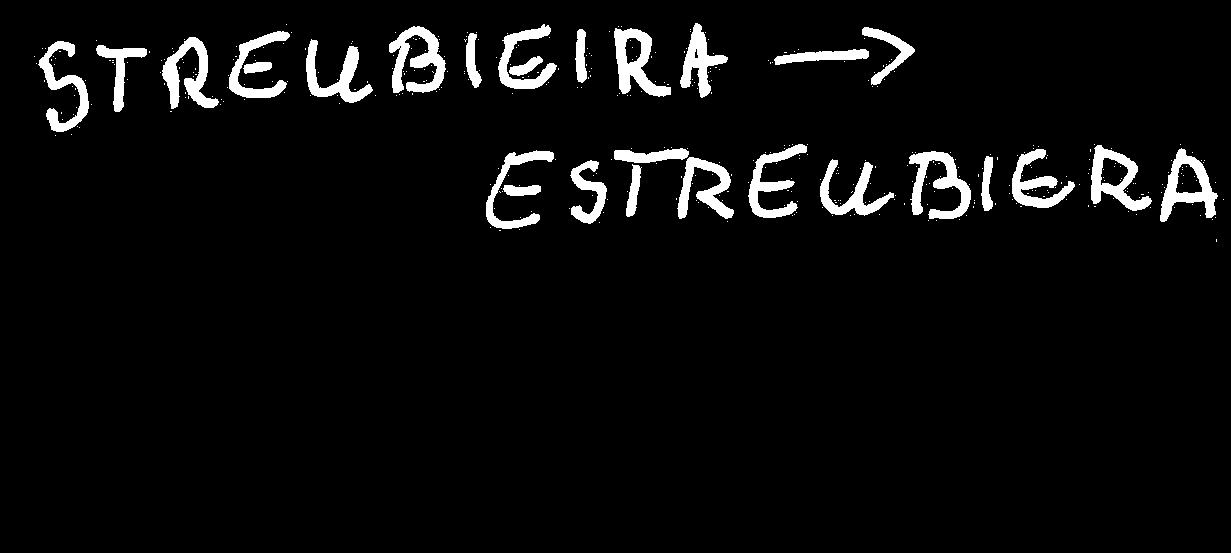 STREUBIEIRA →
ESTREUBIERA